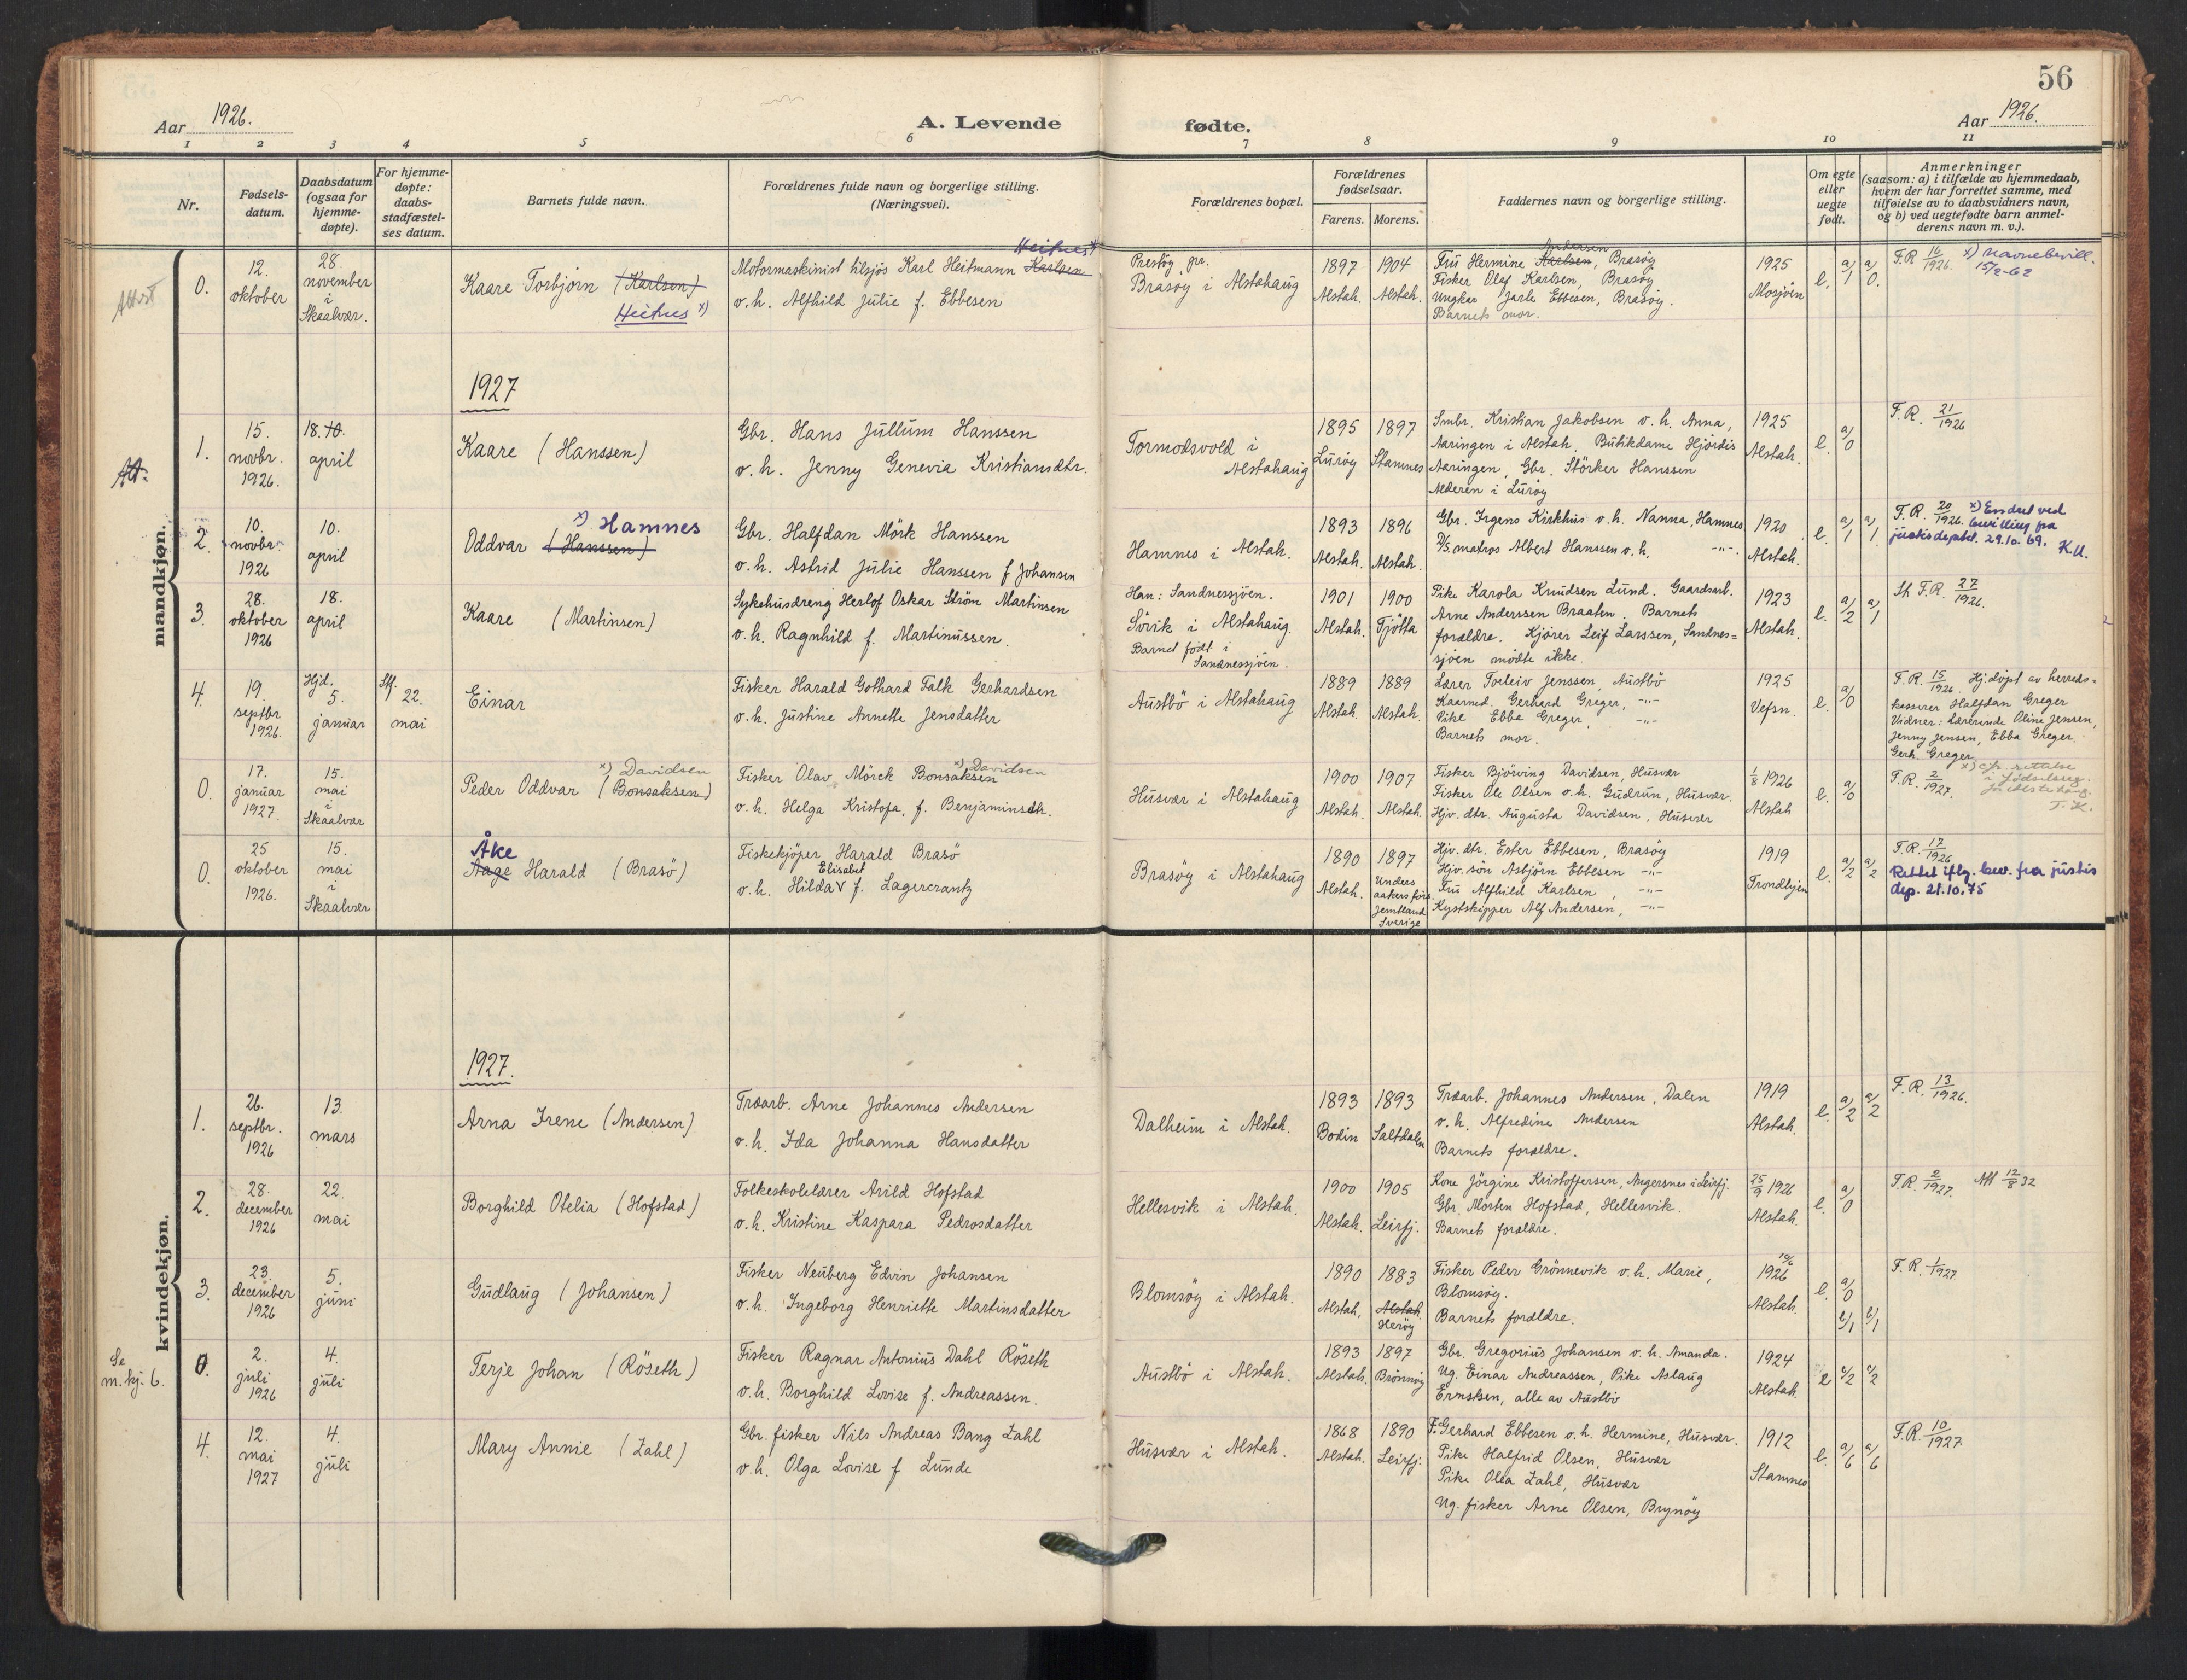 56
Aar 1926.
A. Levende fødte.
Aar 1926.
1 2 3 4 5 6 7 8 9 10 11
Nr.
Fødsels-
datum.
Daabsdatum
(ogsaa for
hjemme-
døpte).
For hjemme-
døpte:
daabs-
stadfæstel-
ses datum.
Barnets fulde navn.
Forældrenes fulde navn og borgerlige stilling.
(Næringsvei).
Forældrenes bopæl.
Forældrenes
fødselsaar.
Farens. Morens.
Faddernes navn og borgerlige stilling.
Om egte
eller
uegte
født.
Anmerkninger
(saasom: a) i tilfælde av hjemmedaab,
hvem der har forrettet samme, med
tilføielse av to daabsvidners navn,
og b) ved uegtefødte barn anmel-
derens navn m. v.).
mandkjøn.
Attest
0.
12.
oktober
28.
november
i
Skaalvær.
Kaare Torbjørn (Karlsen)
Heitnes x)
Heitnes x)
Motormaskinist tilsjøs Karl Heitmann Karlsen
o. h. Alfhild Julie f. Ebbesen
Prestøy pr.
Brasøy i Alstahaug
1897
Alstah.
1904
Alstah.
Andersen
Fru Hermine Karlsen, Brasøy
Fisker Olaf Karlsen, Brasøy
Ungkar Jarle Ebbesen, Brasøy.
Barnets mor.
1925
Mosjöen
e. a/1 a/0.
F.R. 16/1926. x) Navnebevill.
15/2-62
1927
Att.
1.
15.
novbr.
1926.
18. 10.
april
Kaare (Hanssen)
Gbr. Hans Jullum Hanssen
o. h. Jenny Genevia Kristiansdtr.
Tormodsvold i
Alstahaug
1895
Lurøy
1897
Stamnes
Smbr. Kristian Jakobsen o. h. Anna,
Aaringen i Alstah. Butikdame Hjørdis
Aaringen, Gbr. Störker Hanssen
Alderen i Lurøy
1925
Alstah.
e. a/0
F. R. 21/1926
2.
10.
novbr.
1926
10.
april
x) Hamnes
Oddvar (Hanssen)
Gbr. Halfdan Mörk Hanssen
o. h. Astrid Julie Hanssen f Johansen
Hamnes i Alstah.
1893
Alstah.
1896
Alstah.
Gbr. Irgens Kirkhus o. h. Nanna, Hamnes
D/S. matros Albert Hanssen o. h. -"-
1920
Alstah.
e. a/1 a/1.
F. R. 20/1926. x) Endret ved
bevilling fra
justisdeptet. 29.10.69. K.U.
3.
28.
oktober
1926
18.
april
Kaare (Martinsen)
Sykehusdreng Herlof Oskar Ström Martinsen
o. h. Ragnhild f. Martinussen.
Han: Sandnessjöen.
Sövik i Alstahaug.
Barnet født i
Sandnessjöen.
1901
Alstah.
1900
Tjøtta
Pike Karola Knudsen Lund. Gaardsarb.
Arne Anderssen Braaten. Barnets
forældre. Kjører Leif Larssen, Sandnes=
sjöen mødte ikke.
1923
Alstah.
e. a/2 a/1
St F.R. 27/1926.
4.
19.
septbr
1926.
Hjd.
5.
januar
Stf.
22.
mai
Einar
Fisker Harald Gothard Falk Gerhardsen
o. h. Justine Annette Jensdatter
Austbö i Alstahaug
1889
Alstah.
1889
Alstah.
Lærer Torleiv Jenssen, Austbö
Kaarmd. Gerhard Greger, -"-
Pike Ebba Greger, -"-
Barnets mor.
1925
Vefsn.
e. a/0
F. R. 15/1926. Hj.døpt av herreds=
kasserer Halfdan Greger
Vidner: Lærerinde Oline Jensen,
Jenny Jensen, Ebba Greger.
Gerh. Greger
0.
17.
januar
1927.
15.
mai
i
Skaalvær
x) Davidsen
Peder Oddvar (Bonsaksen)
x) Davidsen
Fisker Olav Mörck Bonsaksen
o. h. Helga Kristofa, f. Benjaminsdtr.
Husvær i Alstahaug
1900
Alstah.
1907
Alstah.
Fisker Bjørving Davidsen, Husvær
Fisker Ole Olsen o. h. Gudrun, Husvær.
Hjv. dtr. Augusta Davidsen, Husvær
1/8 1926
Alstah
e. a/0
F. R. 2/1927. x) cfr. rettelse
i fødselsreg.
T. K.
0.
25
oktober
1926.
15.
mai
i
Skaalvær
Åke
Aage Harald (Brasö)
Fiskekjöper Harald Brasö
Elisabet
o. h. Hilda v f. Lagercrantz
Brasøy i Alstahaug
1890
Alstah.
1897
Unders
aakers förs.
Jemtland
Sverige
Hjv. dtr. Ester Ebbesen, Brasøy
Hjv. søn Asbjörn Ebbesen -"-
Fru Alfhild Karlsen, -"-
Kystskipper Alf Andersen, -"-
1919
Trondhjem
e. a/2 a/2
F. R. 17/1926
Rettet iflg. bev. fra justis
dep. 21.10.75
kvindekjøn.
1927.
1.
26.
septbr.
1926
13.
mars
Arna Irene (Andersen)
Træarb. Arne Johannes Andersen
o. h. Ida Johanna Hansdatter
Dalheim i Alstah.
1893
Bodin
1893
Saltdalen
Træarb. Johannes Andersen, Dalen
o. h. Alfredine Andersen
Barnets forældre.
1919
Alstah.
e. a/2 a/2
F. R. 13/1926.
2.
28.
december
1926
22.
mai
Borghild Otelia (Hofstad)
Folkeskolelærer Arild Hofstad
o. h. Kristine Kaspara Pedrosdatter
Hellesvik i Alstah.
1900
Alstah.
1905
Leirfj.
Kone Jörgine Kristoffersen, Angersnes i Leirfj.
Gbr. Morten Hofstad, Hellesvik.
Barnets forældre.
25/9 1926
Alstah.
e. a/0
F. R. 2/1927. Att 12/8 32
3.
23.
december
1926
5.
juni
Gudlaug (Johansen)
Fisker Neuberg Edvin Johansen
o. h. Ingeborg Henriette Martinsdatter
Blomsøy i Alstah.
1890
Alstah.
1883
Alstah.
Herøy
Fisker Peder Grönnevik o. h. Marie,
Blomsøy.
Barnets forældre.
10/6
1926
Alstah.
e. a/0
b/1 b/1
F. R. 1/1927.
Se
m. kj. 6.
0.
2.
juli
1926
4.
juli
Terje Johan (Röseth)
Fisker Ragnar Antonius Dahl Röseth
o. h. Borghild Lovise f. Andreassen.
Austbö i Alstah.
1893
Alstah.
1897
Brönnøy
Gbr. Gregorius Johansen o. h. Amanda.
Ug. Einar Andreassen, Pike Aslaug
Ernstsen, alle av Austbö
1924
Alstah.
e a/2 a/2
4.
12.
mai
1927
4.
juli
Mary Annie (Zahl)
Gbr. fisker Nils Andreas Bang Zahl
o. h. Olga Lovise f Lunde
Husvær i Alstah.
1868
Alstah.
1890
Leirfj.
F. Gerhard Ebbesen o. h. Hermine, Husvær.
Pike Halfrid Olsen, Husvær
Pike Olea Zahl, Husvær
Ug. fisker Arne Olsen, Brynøy
1912
Stamnes
e. a/6 a/6
F. R. 10/1927.